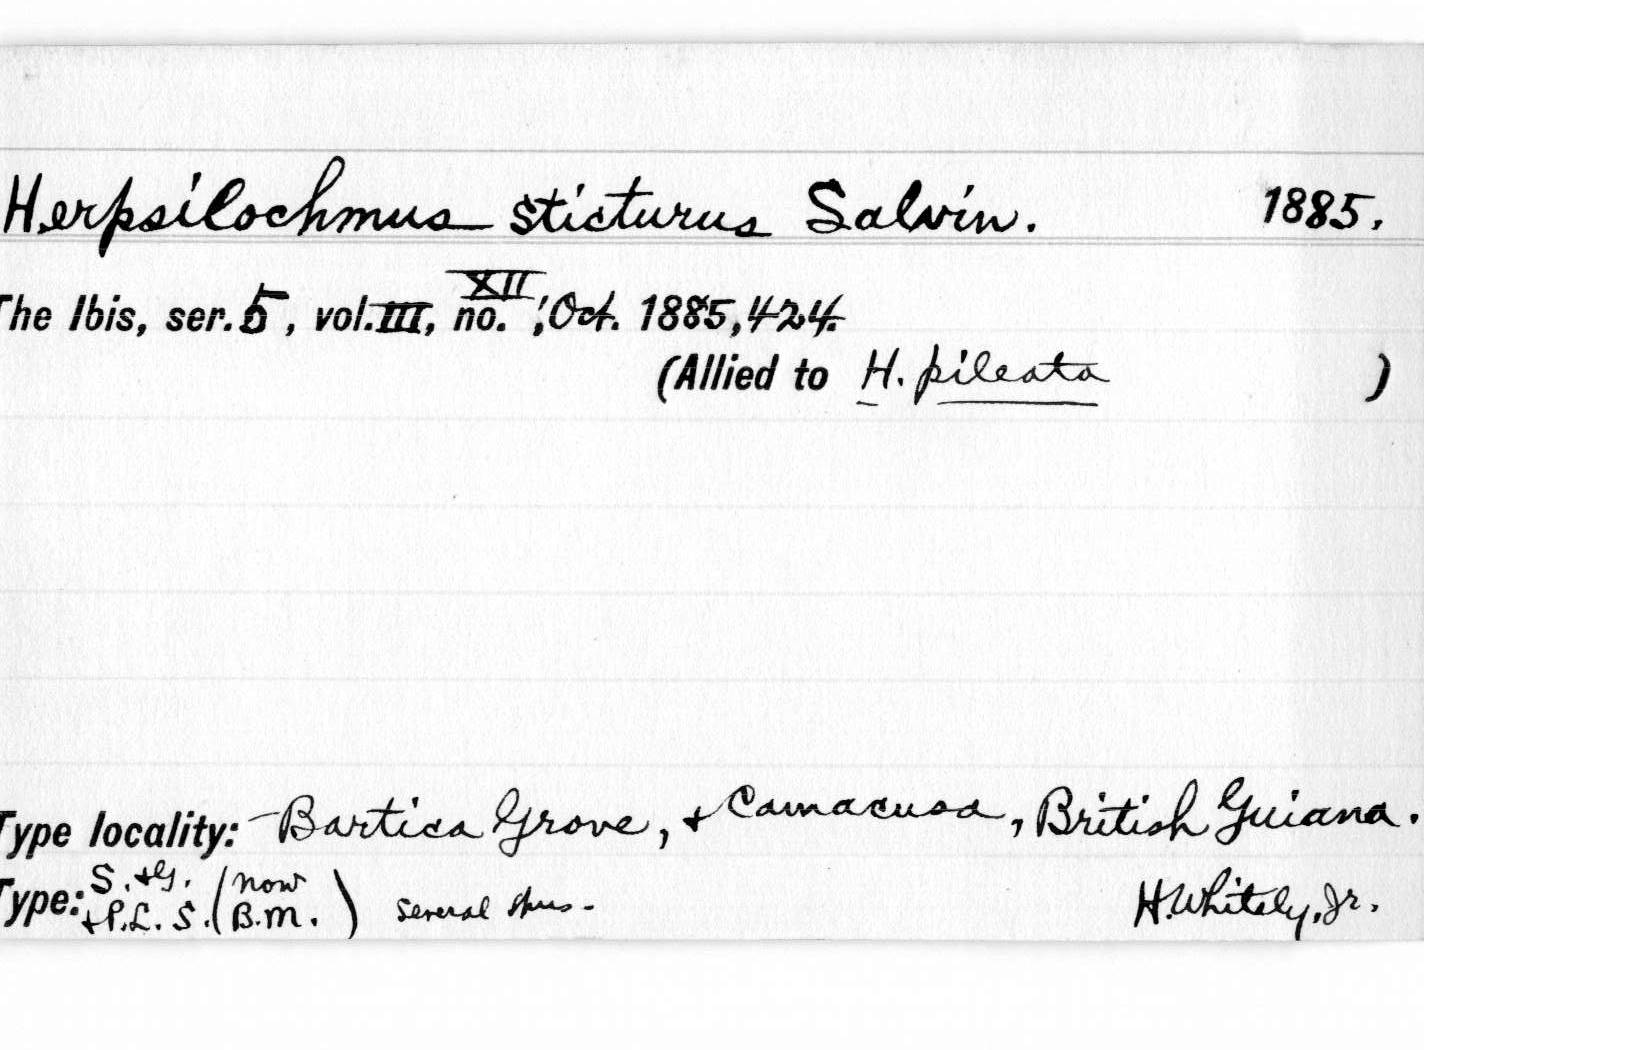 Herpsilochmus sticturus Salvin. 1885.
The Ibis, ser. 5, vol. III, no. XII, Oct. 1885, 424.
(Allied to H. pileata )
Type locality: Bartica Grove, + Camacusa, British Guiana.
Type: S. + G. + P. L. S. (now B.M.) several spns. H. Whitely, Jr.